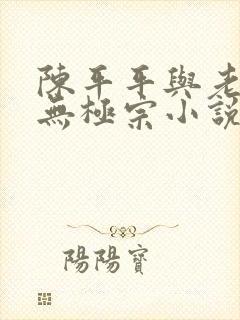 陳平平與老
無極宗小説
陽陽寶